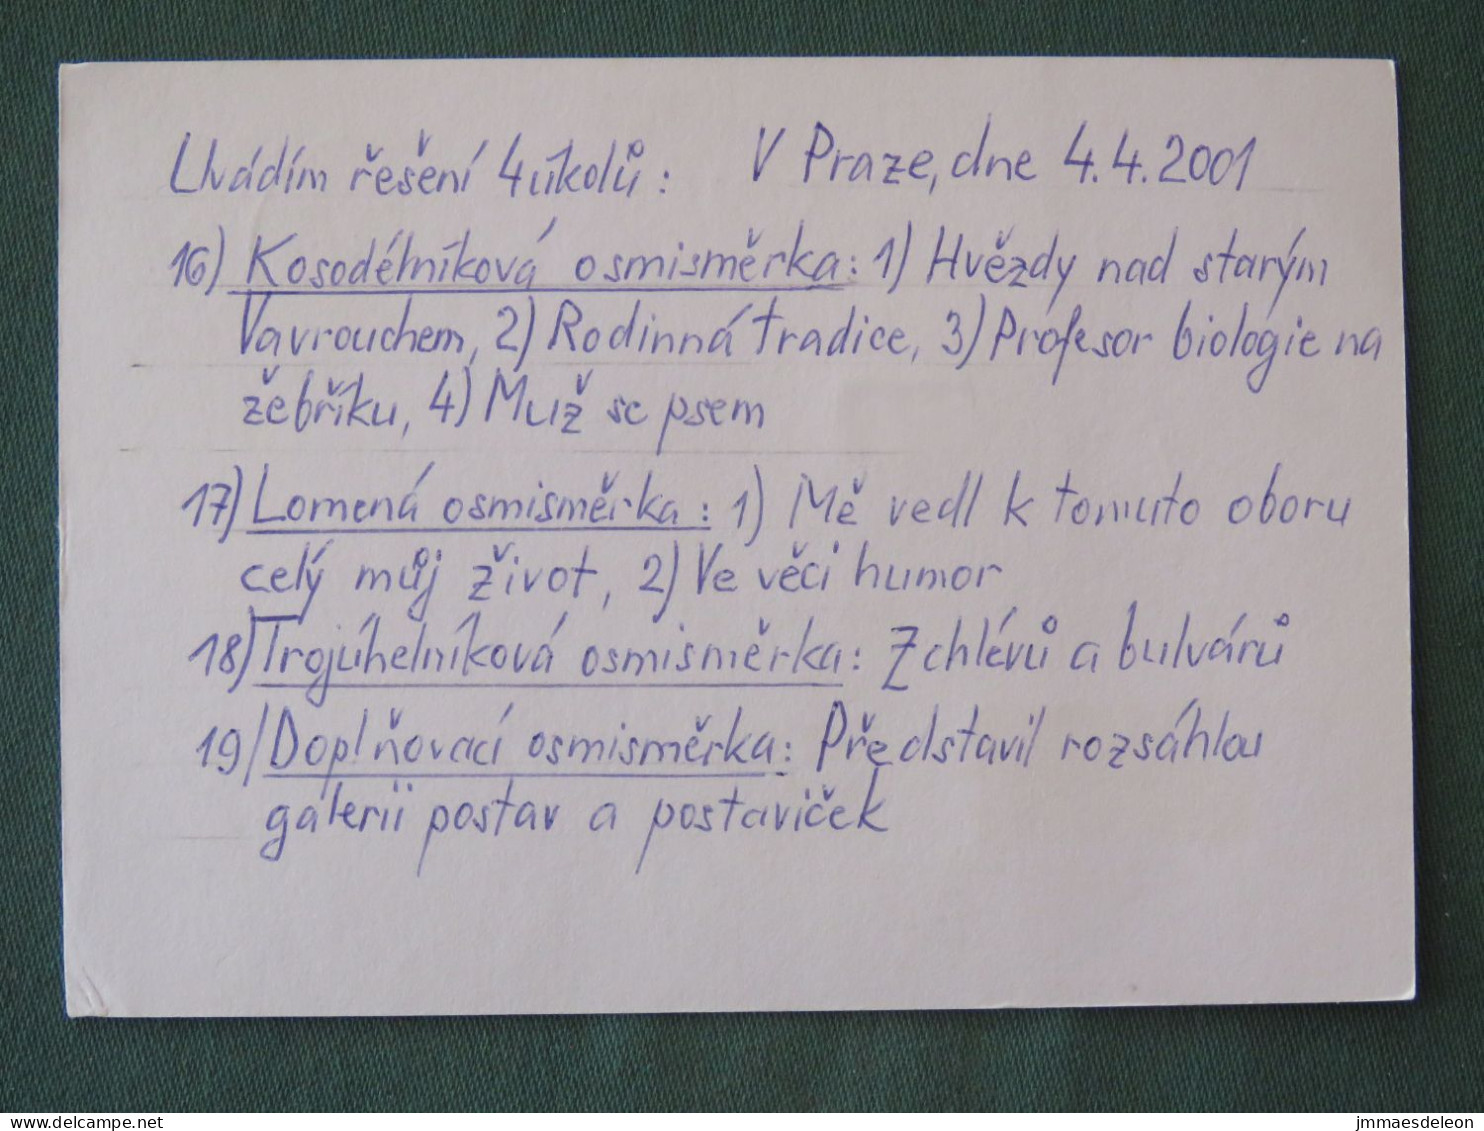 Uvádím řešení 4 úkolů: V Praze, dne 4.4.2001
16) Kosodélníková osmisměrka: 1) Hvězdy nad starým
Vavrouchem, 2) Rodinná tradice, 3) Profesor biologie na
žebříku, 4) Muž se psem
17) Lomená osmisměrka: 1) Mě vedl k tomuto oboru
celý můj život, 2) Ve věci humor
18) Trojúhelníková osmisměrka: Z chlévů a bulvárů
19) Doplňovací osmisměrka: Představil rozsáhlou
galerii postav a postaviček
delcampe.net
jmmaesdeleon